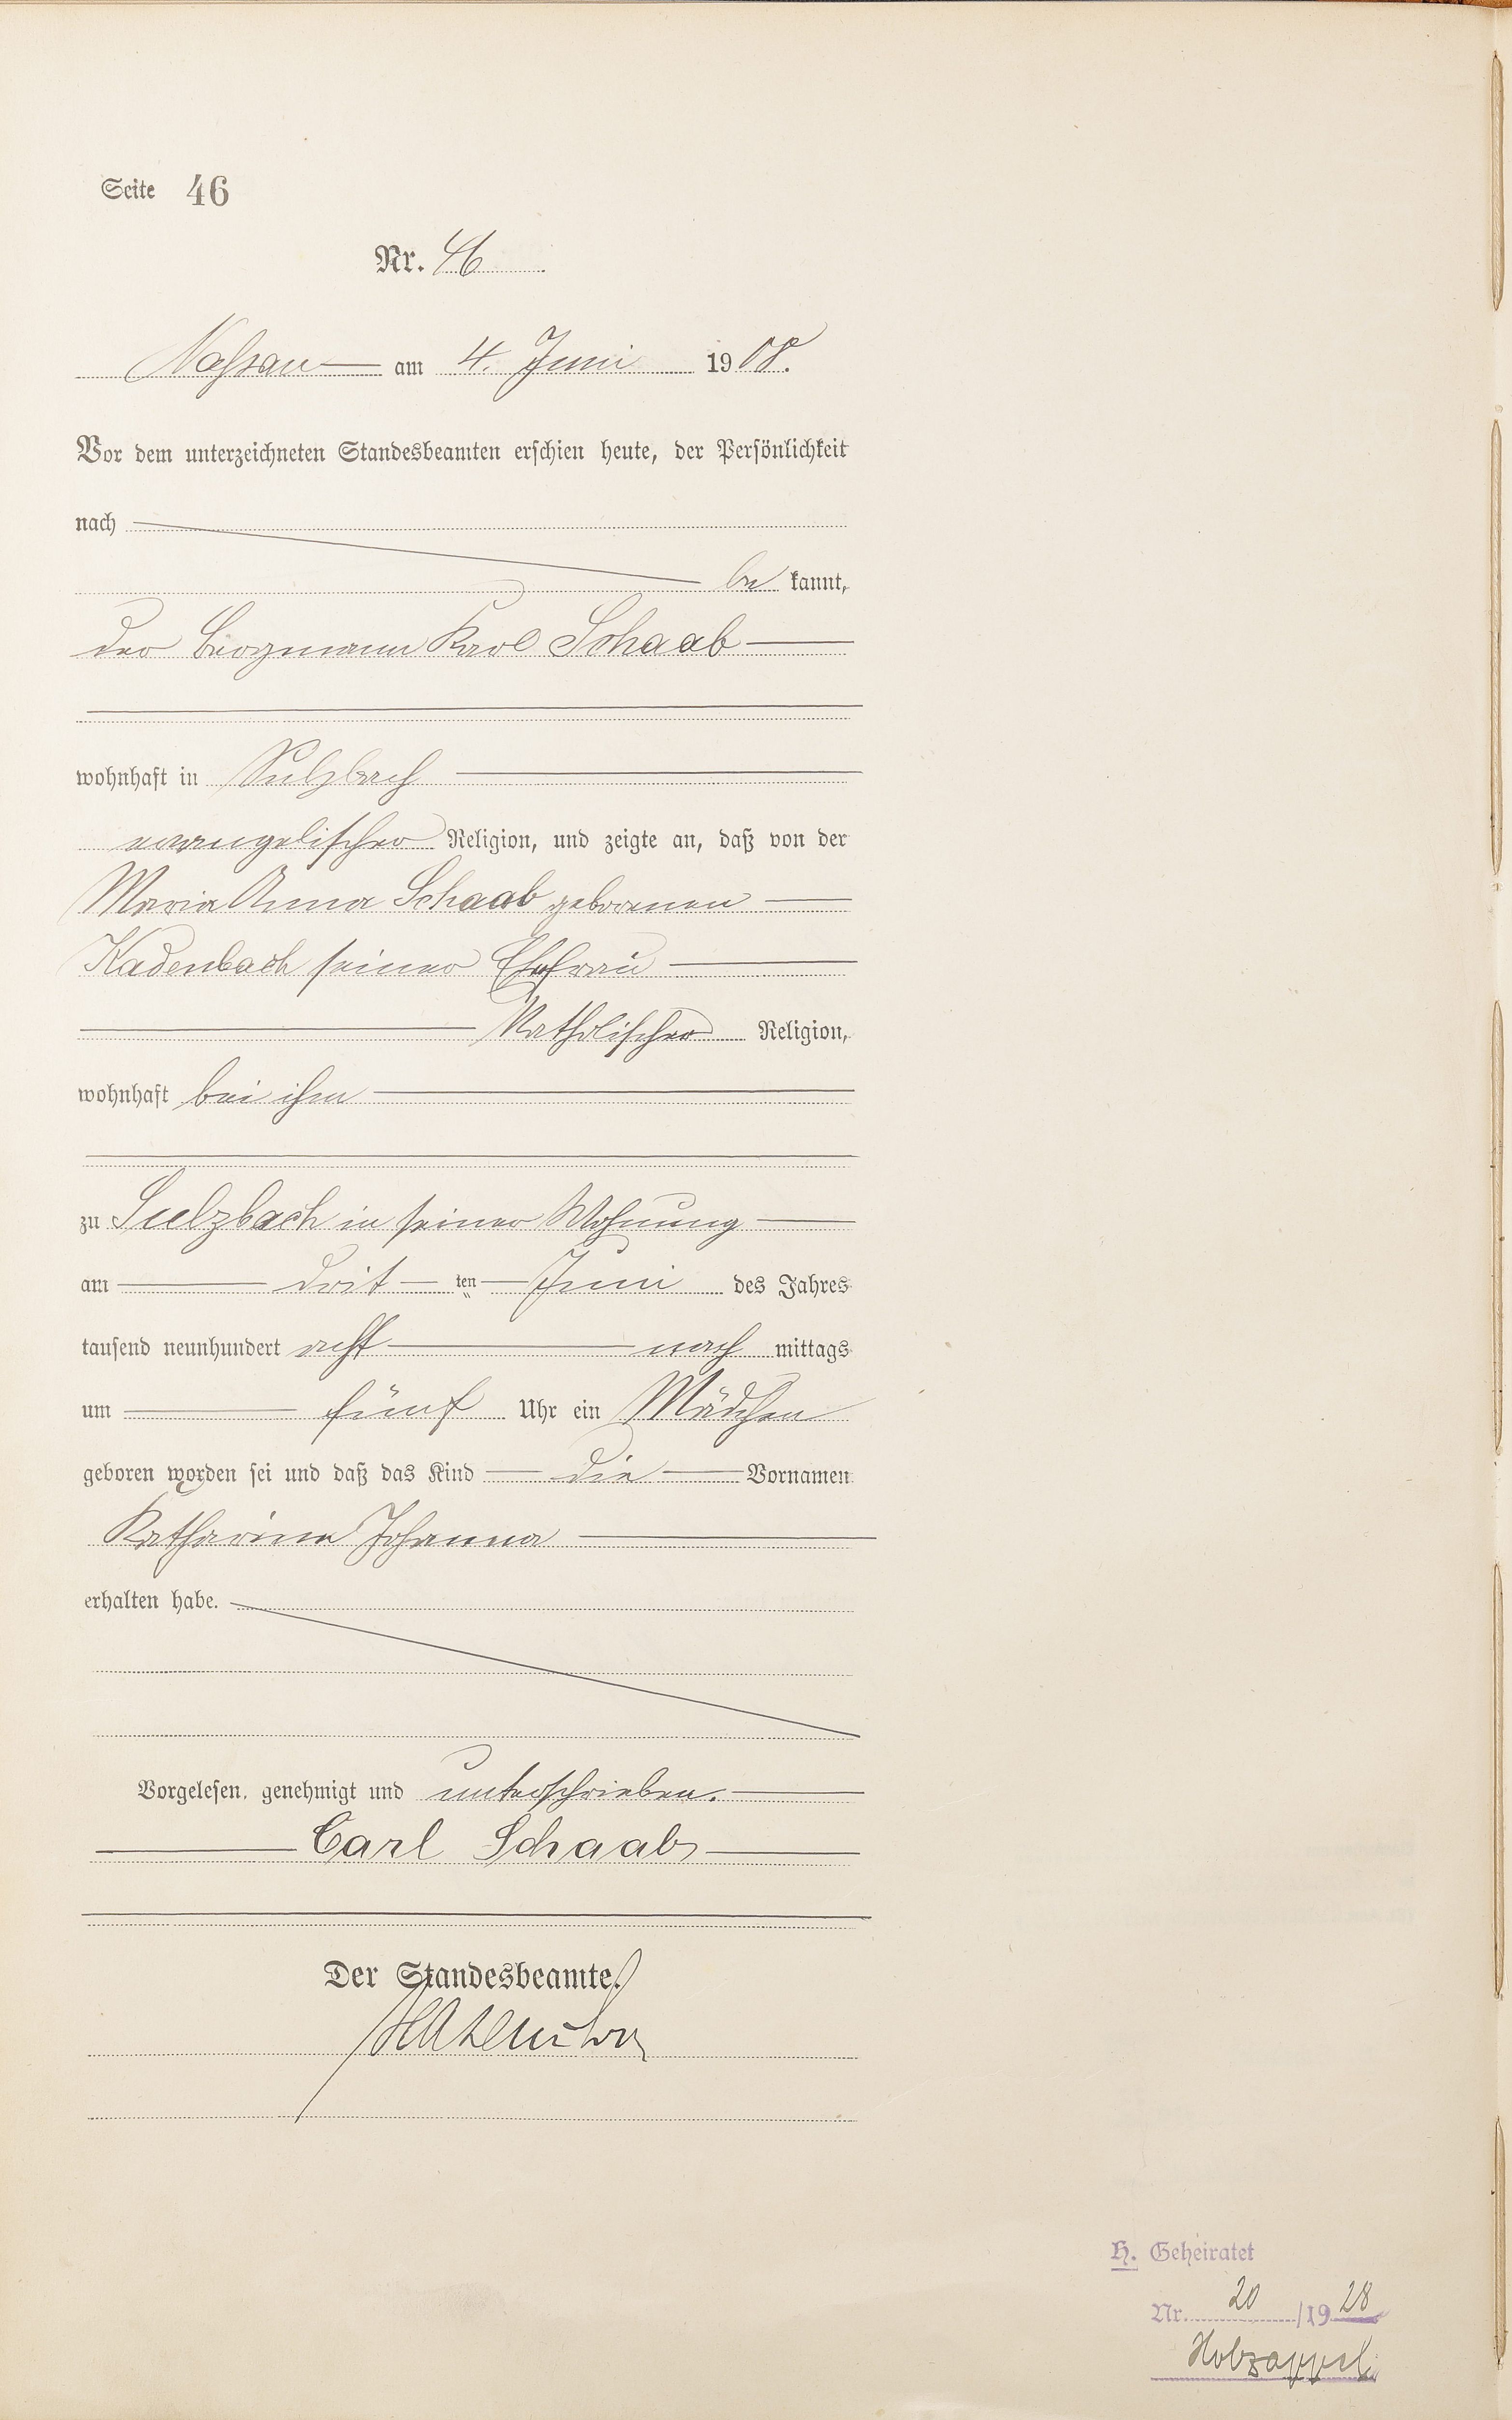 Seite 46
Nr. 46
Nassau am 4. Juni 1908.
Vor dem unterzeichneten Standesbeamten erschien heute, der Persönlichkeit
nach
be kannt,
der Bergmann Karl Schaab
wohnhaft in Sulzbach
evangelischer Religion, und zeigte an, daß von der
Maria Anna Schaab geborenen
Kadenbach seiner Ehefrau
Katholischer Religion,
wohnhaft bei ihm
zu Sulzbach in seiner Wohnung
am drit ten Juni des Jahres
tausend neunhundert acht nach mittags
um fünf Uhr ein Mädchen
geboren worden sei und daß das Kind die Vornamen
Katharina Johanna
erhalten habe.
Vorgelesen, genehmigt und unterschrieben.
Carl Schaab
Der Standesbeamte.
H. Geheiratet
Nr. 20 /1928
Holzappel